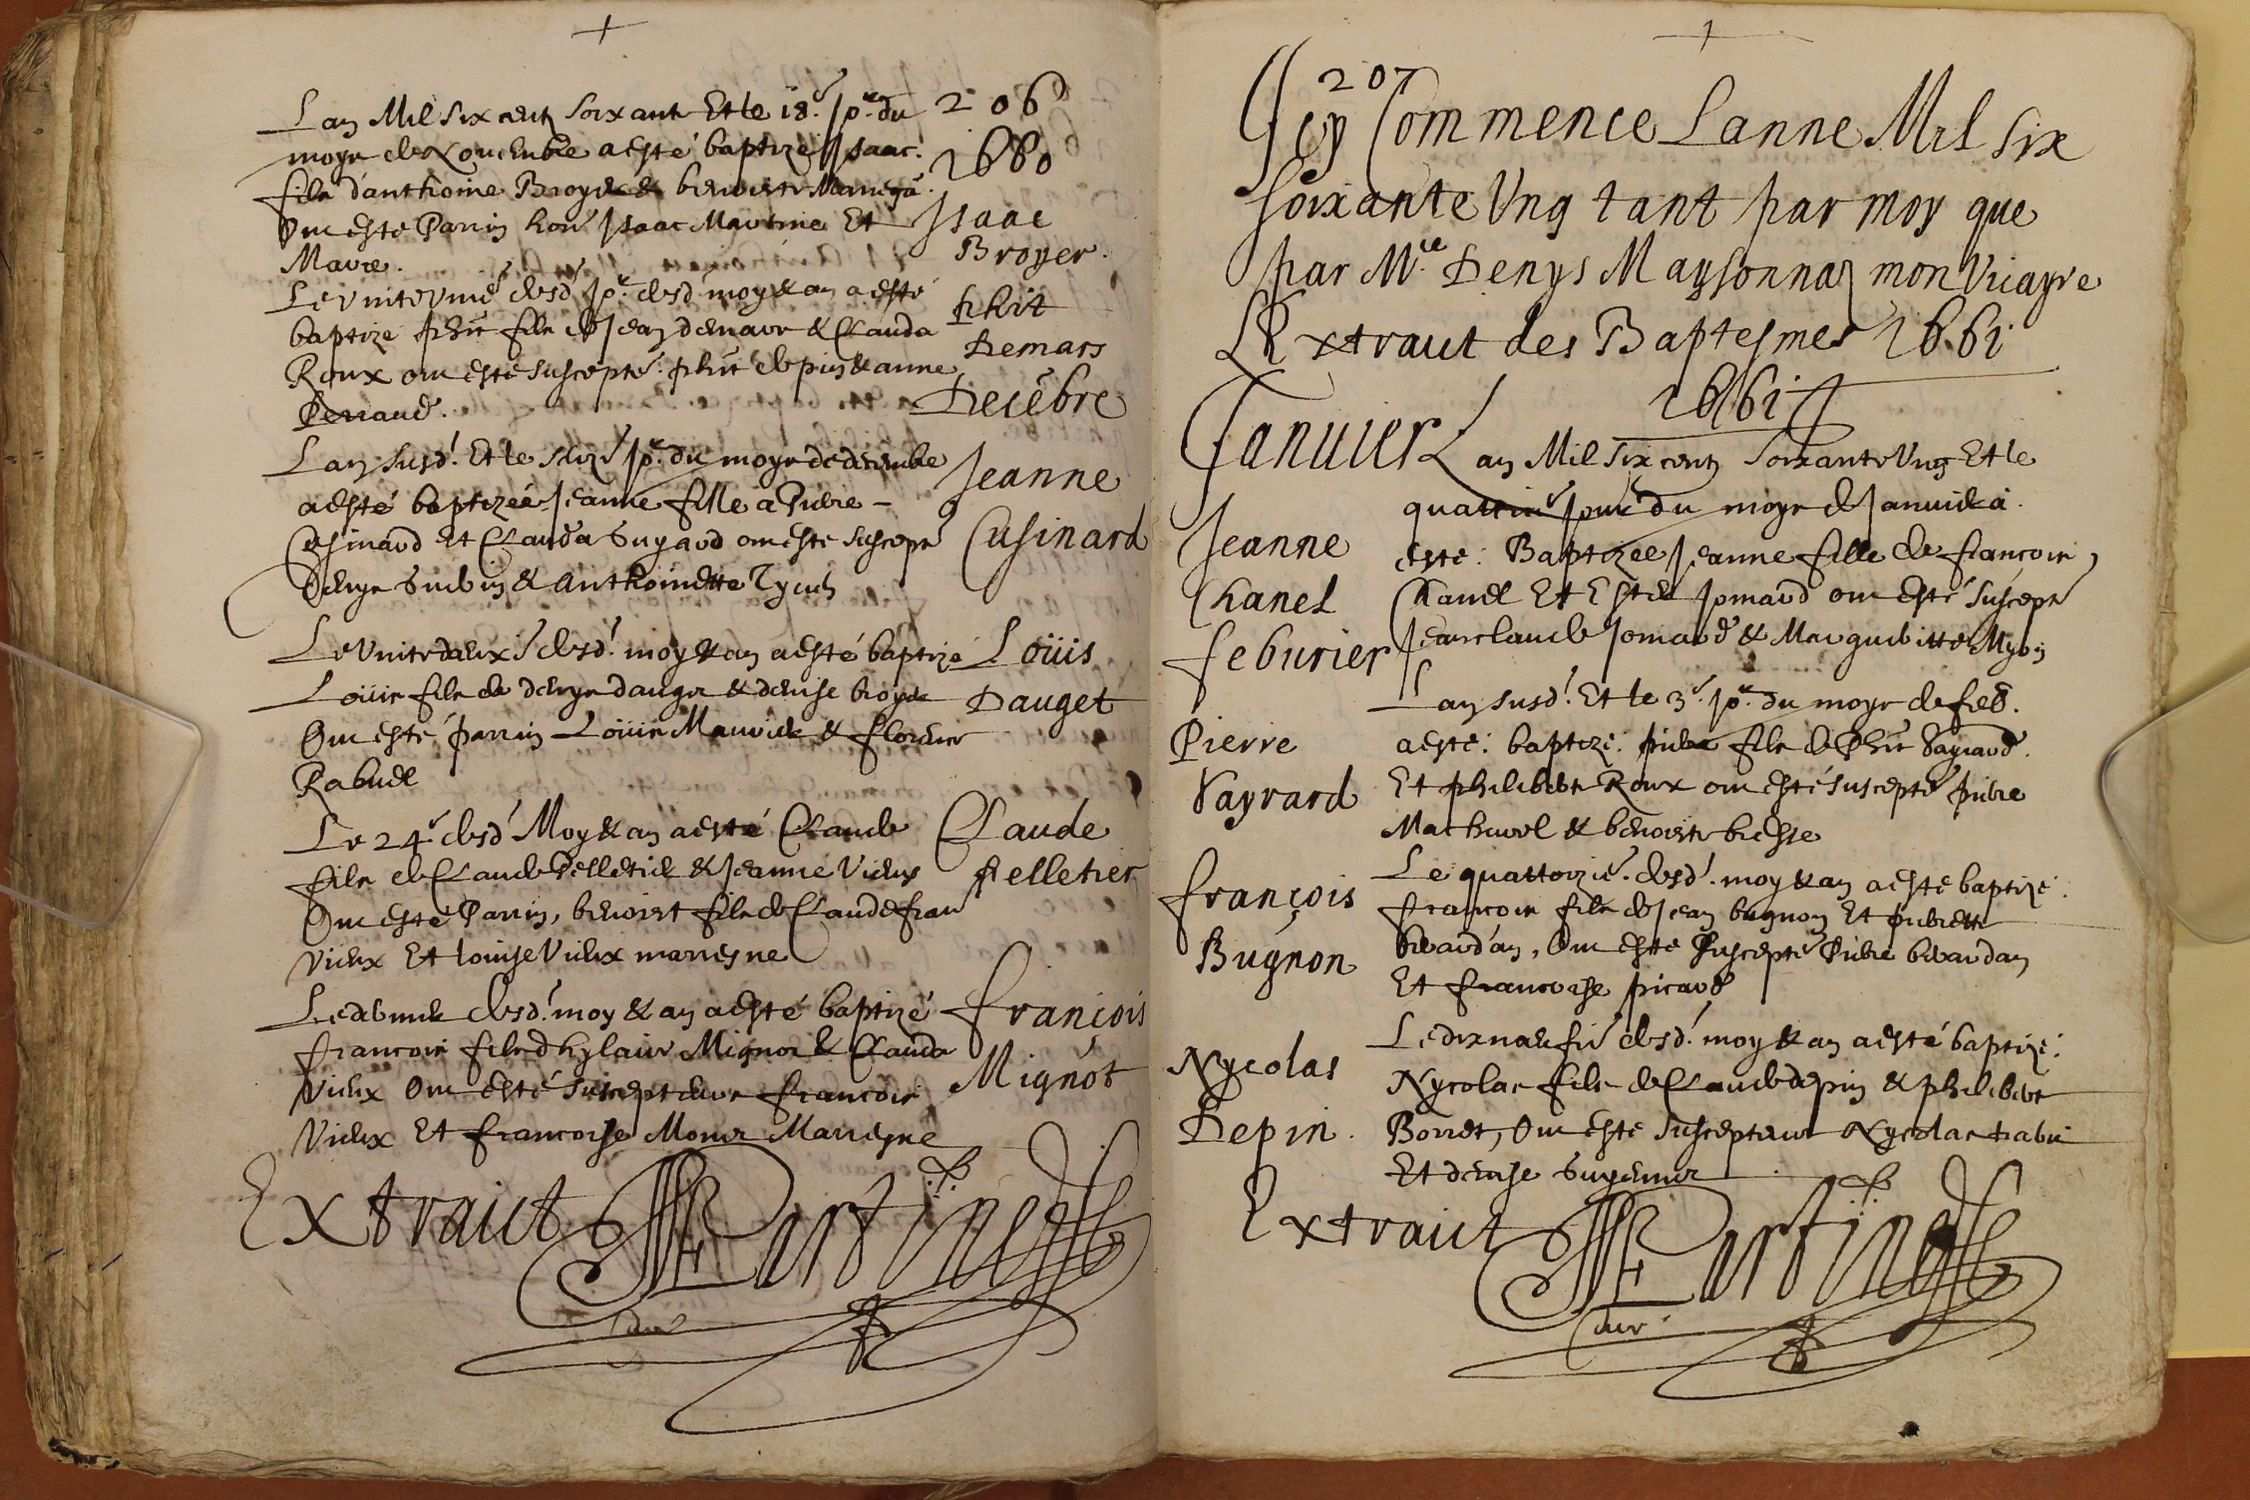 206
1660
Lan Mil Six cent soixante Et le 18.e Jo.r du
moys de Novembre a esté baptizé Isaac.
fils d'anthoine Broyer & benoiste
Ont esté Parrin hon. Isaac Et
Marie.
Isaac
Broyer.
Le vintiesme desd. Jo.r desd moy & an a esté
baptizé phit fils de Jean & Clauda
Roux ont esté suscepte. phit depin & anne
Perraud.
phit
Demars
Decēbre
Lan susd! Et le Jo.r du moys de decembre
a esté baptizée Jeanne fille a Pierre -
Cusinard Et Clauda ont esté suscept
Denys & anthoinette
Jeanne
Cusinard
Le vintedeuxe desd! moy & an a esté baptizé
Loüis fils de denys dauget & denise broyer
Ont esté parrin Loüis & florence
Rabuel
Loüis
Dauget
Le 24.e desd Moy & an a esté Claude
fils de Claude Pelletier & Jeanne Vieux
Ont esté Parrin, benoist fils de Claude fran
Vieux Et louise Vieux marresne
Claude
Pelletier
Le desd! moy & an a esté baptizé
francois fils d'hylaire Mignot & Clauda
Vieux Ont esté suscepteurs francois
Vieux Et francoise Marresne
françois
Mignot
Extraict
cur
207
Icy Commence Lanne Mil Six
soixante Ung tant par moy que
par M.re Denys Maysonnaz mon Vicayre
LExtraict des Baptesmes 1661
1661
Januier
Lan Mil six cent soixante Ung Et le
quattrie Jour du moys de Januier a
esté. Baptizée Jeanne fille de francois
Chanel Et Ester Jomard ont esté suscept
Jean claude Jomard & Margueritte
Jeanne
Chanel
feburier
Lan susd! Et le 3.e Jo.r du moys de feb.
a esté. baptizé. pierre fils de Phit Vayrard.
Et philiberte Roux ont esté suscepte pierre
& benoiste
Pierre
Vayrard
Le quattorzie. desd! moy & an a esté baptizé.
francois fils de Jean bugnon Et pierrette
Ont esté suscepte Pierre
Et francoise picard
françois
Bugnon
Le dixneufie desd! moy & an a esté baptizé.
Nycolas fils de Claude depin & philiberte
Borret, Ont esté suscepteur Nycolas
Et denise
Nycolas
Depin.
Extraict
cur.